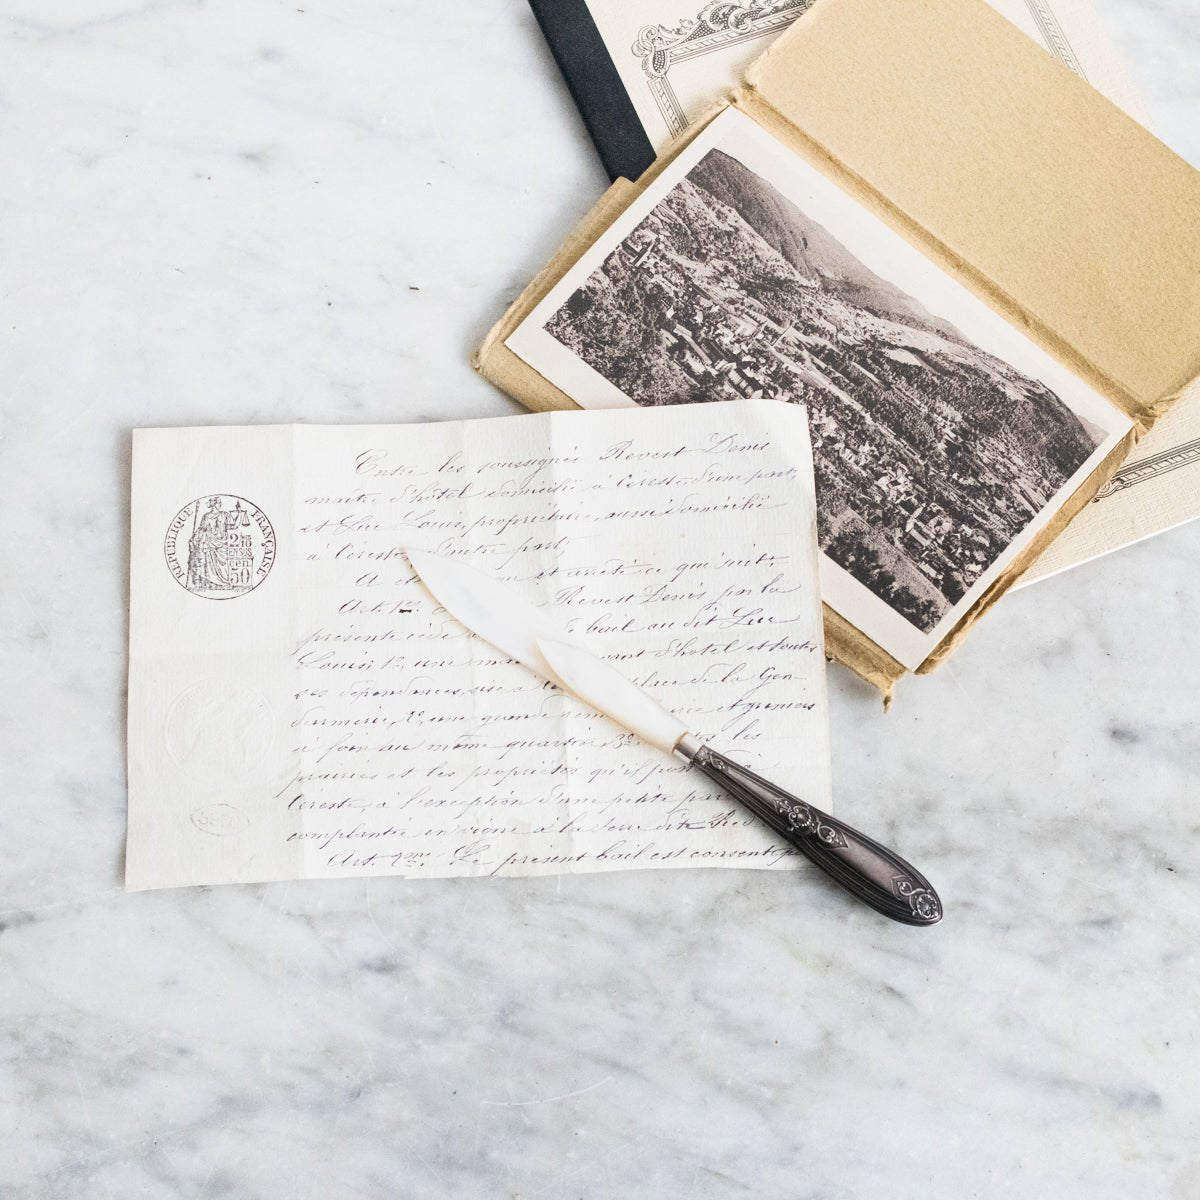 RÉPUBLIQUE FRANÇAISE
2/10
EN SUS
cen.
50
Entre les soussignés Revest Denis
maître d'hôtel domicilié à Céreste d'une part,
et Luc Louis, propriétaire, aussi domicilié
à Céreste d'autre part,
A et et arrêté ce qui suit.
Art. 1er: Revest Denis par la
présente cède bail au dit Luc
Louis; 1º, une d'hôtel et toutes
ses dépendances, sise à place de la Gen
darmerie, 2º, une grande et greniers
à foin au même quartier, 3º les
prairies et les propriétés qu'il
Céreste, à l'exception d'une petite
complantée en vigne à la terre dite
Art. 2me: Le présent bail est consenti